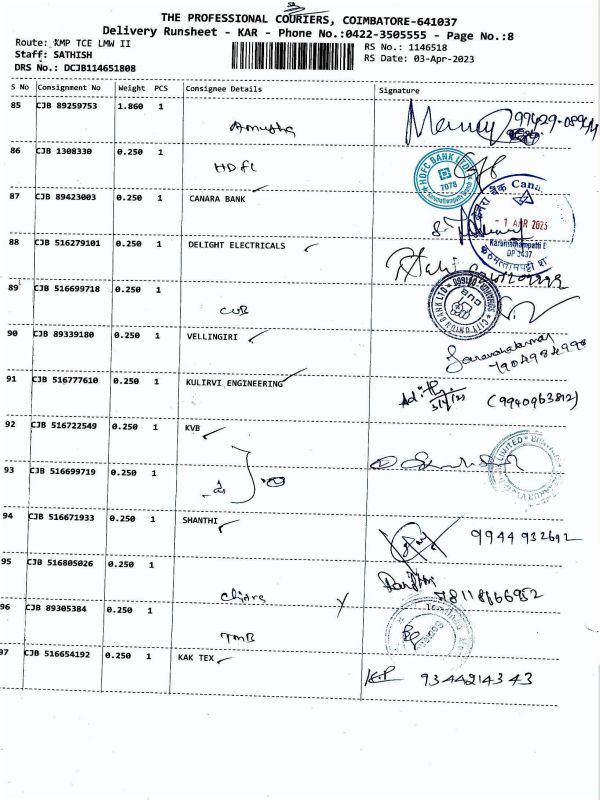 THE PROFESSIONAL COURIERS, COIMBATORE-641037
Delivery Runsheet - KAR - Phone No.:0422-3505555 - Page No.:8
Route: KMP TCE LMW II
RS No.: 1146518
Staff: SATHISH
RS Date: 03-Apr-2023
DRS No.: DCJB114651808
S No Consignment No Weight PCS Consignee Details Signature
85 CJB 89259753 1.860 1
Anusha
86 CJB 1308330 0.250 1
HDFC
HDFC BANK LTD
7078
87 CJB 89423003 0.250 1 CANARA BANK
Cana
- 1 APR 2023
Karumathampatti
DP 3437
88 CJB 516279101 0.250 1 DELIGHT ELECTRICALS
89 CJB 516699718 0.250 1
CUB
CITY UNION BANK LTD
90 CJB 89339180 0.250 1 VELLINGIRI
Saravanakumar
7904984998
91 CJB 516777610 0.250 1 KULIRVI ENGINEERING
(9940963812)
92 CJB 516722549 0.250 1 KVB
LIMITED
93 CJB 516699719 0.250 1
94 CJB 516671933 0.250 1 SHANTHI
9944932692
95 CJB 516805026 0.250 1
96 CJB 89305384 0.250 1
TMB
97 CJB 516654192 0.250 1 KAK TEX
9344214343